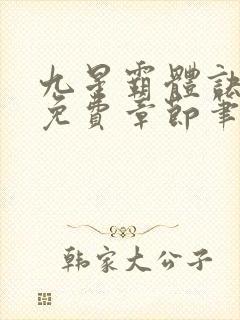 九星霸體訣
免費章節筆
韩家大公子